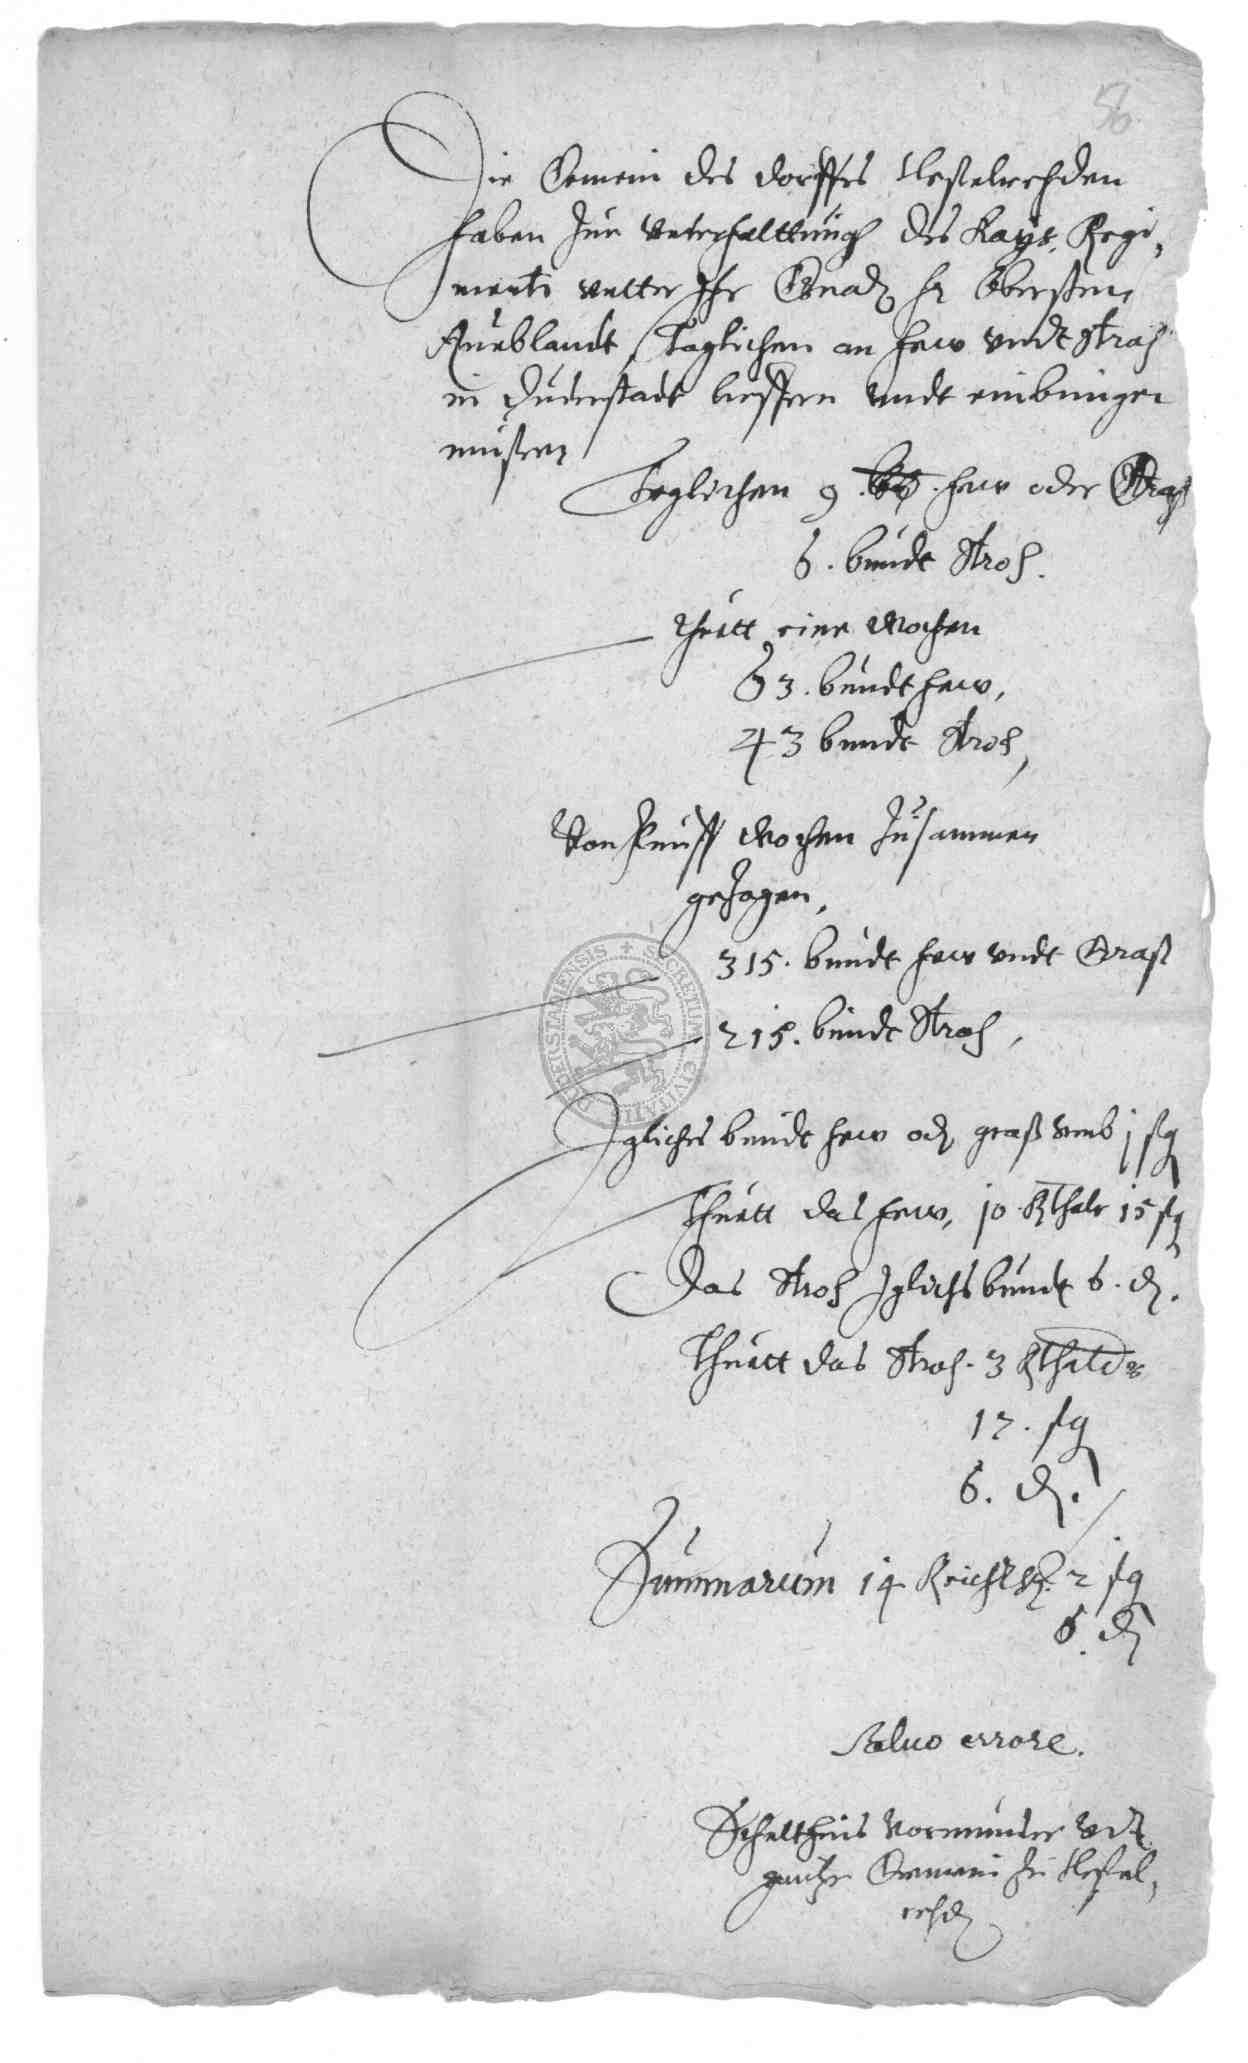 56
Die Gemein des dorffes Neßelrehden
haben zur vnterhalttung des Kays. Regi-
ments vntter Ihr Gnad hr Obersten
Aueblandt, Taglichen an hew vndt stroh
in Duderstadt lieffern vndt einbringen
müßen
Teglichen 9 hew oder Graß
6. bundt stroh.
Thutt eine Wochen
63. bundt hew,
43 bundt stroh,
Von funff Wochen zusammen
gezogen,
315. bundt hew vndt Graß
215. bundt stroh,
Iglichs bundt hew od graß vmb j ßg
Thutt das hew, 10 Rthalr 15 ßg
Das stroh Iglichs bundt 6. d.
Thutt das stroh. 3 Rthlr
17. ßg
6. d.
Summarum 14 Reichsth. 2 ßg
6. d
Saluo errore.
Schultheis Vormunder vndt
gantze Gemein zu Neßel-
rehd
SECRETUM CIVITATIS DUDERSTADIENSIS